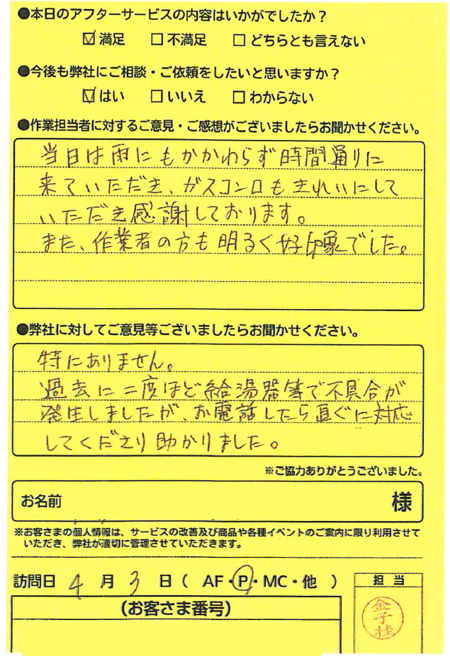 ●本日のアフターサービスの内容はいかがでしたか？
☑ 満足　□ 不満足　□ どちらとも言えない
●今後も弊社にご相談・ご依頼をしたいと思いますか？
☑ はい　□ いいえ　□ わからない
●作業担当者に対するご意見・ご感想がございましたらお聞かせください。
当日は雨にもかかわらず時間通りに
来ていただき、ガスコンロもきれいにして
いただき感謝しております。
また、作業者の方も明るく好印象でした。
●弊社に対してご意見等ございましたらお聞かせください。
特にありません。
過去に二度ほど給湯器等で不具合が
発生しましたが、お電話したら直ぐに対応
してくださり助かりました。
※ご協力ありがとうございました。
お名前　様
※お客さまの個人情報は、サービスの改善及び商品や各種イベントのご案内に限り利用させて
いただき、弊社が適切に管理させていただきます。
訪問日 4 月 3 日（ AF・P・MC・他 ）
担当
（お客さま番号）
金子桂